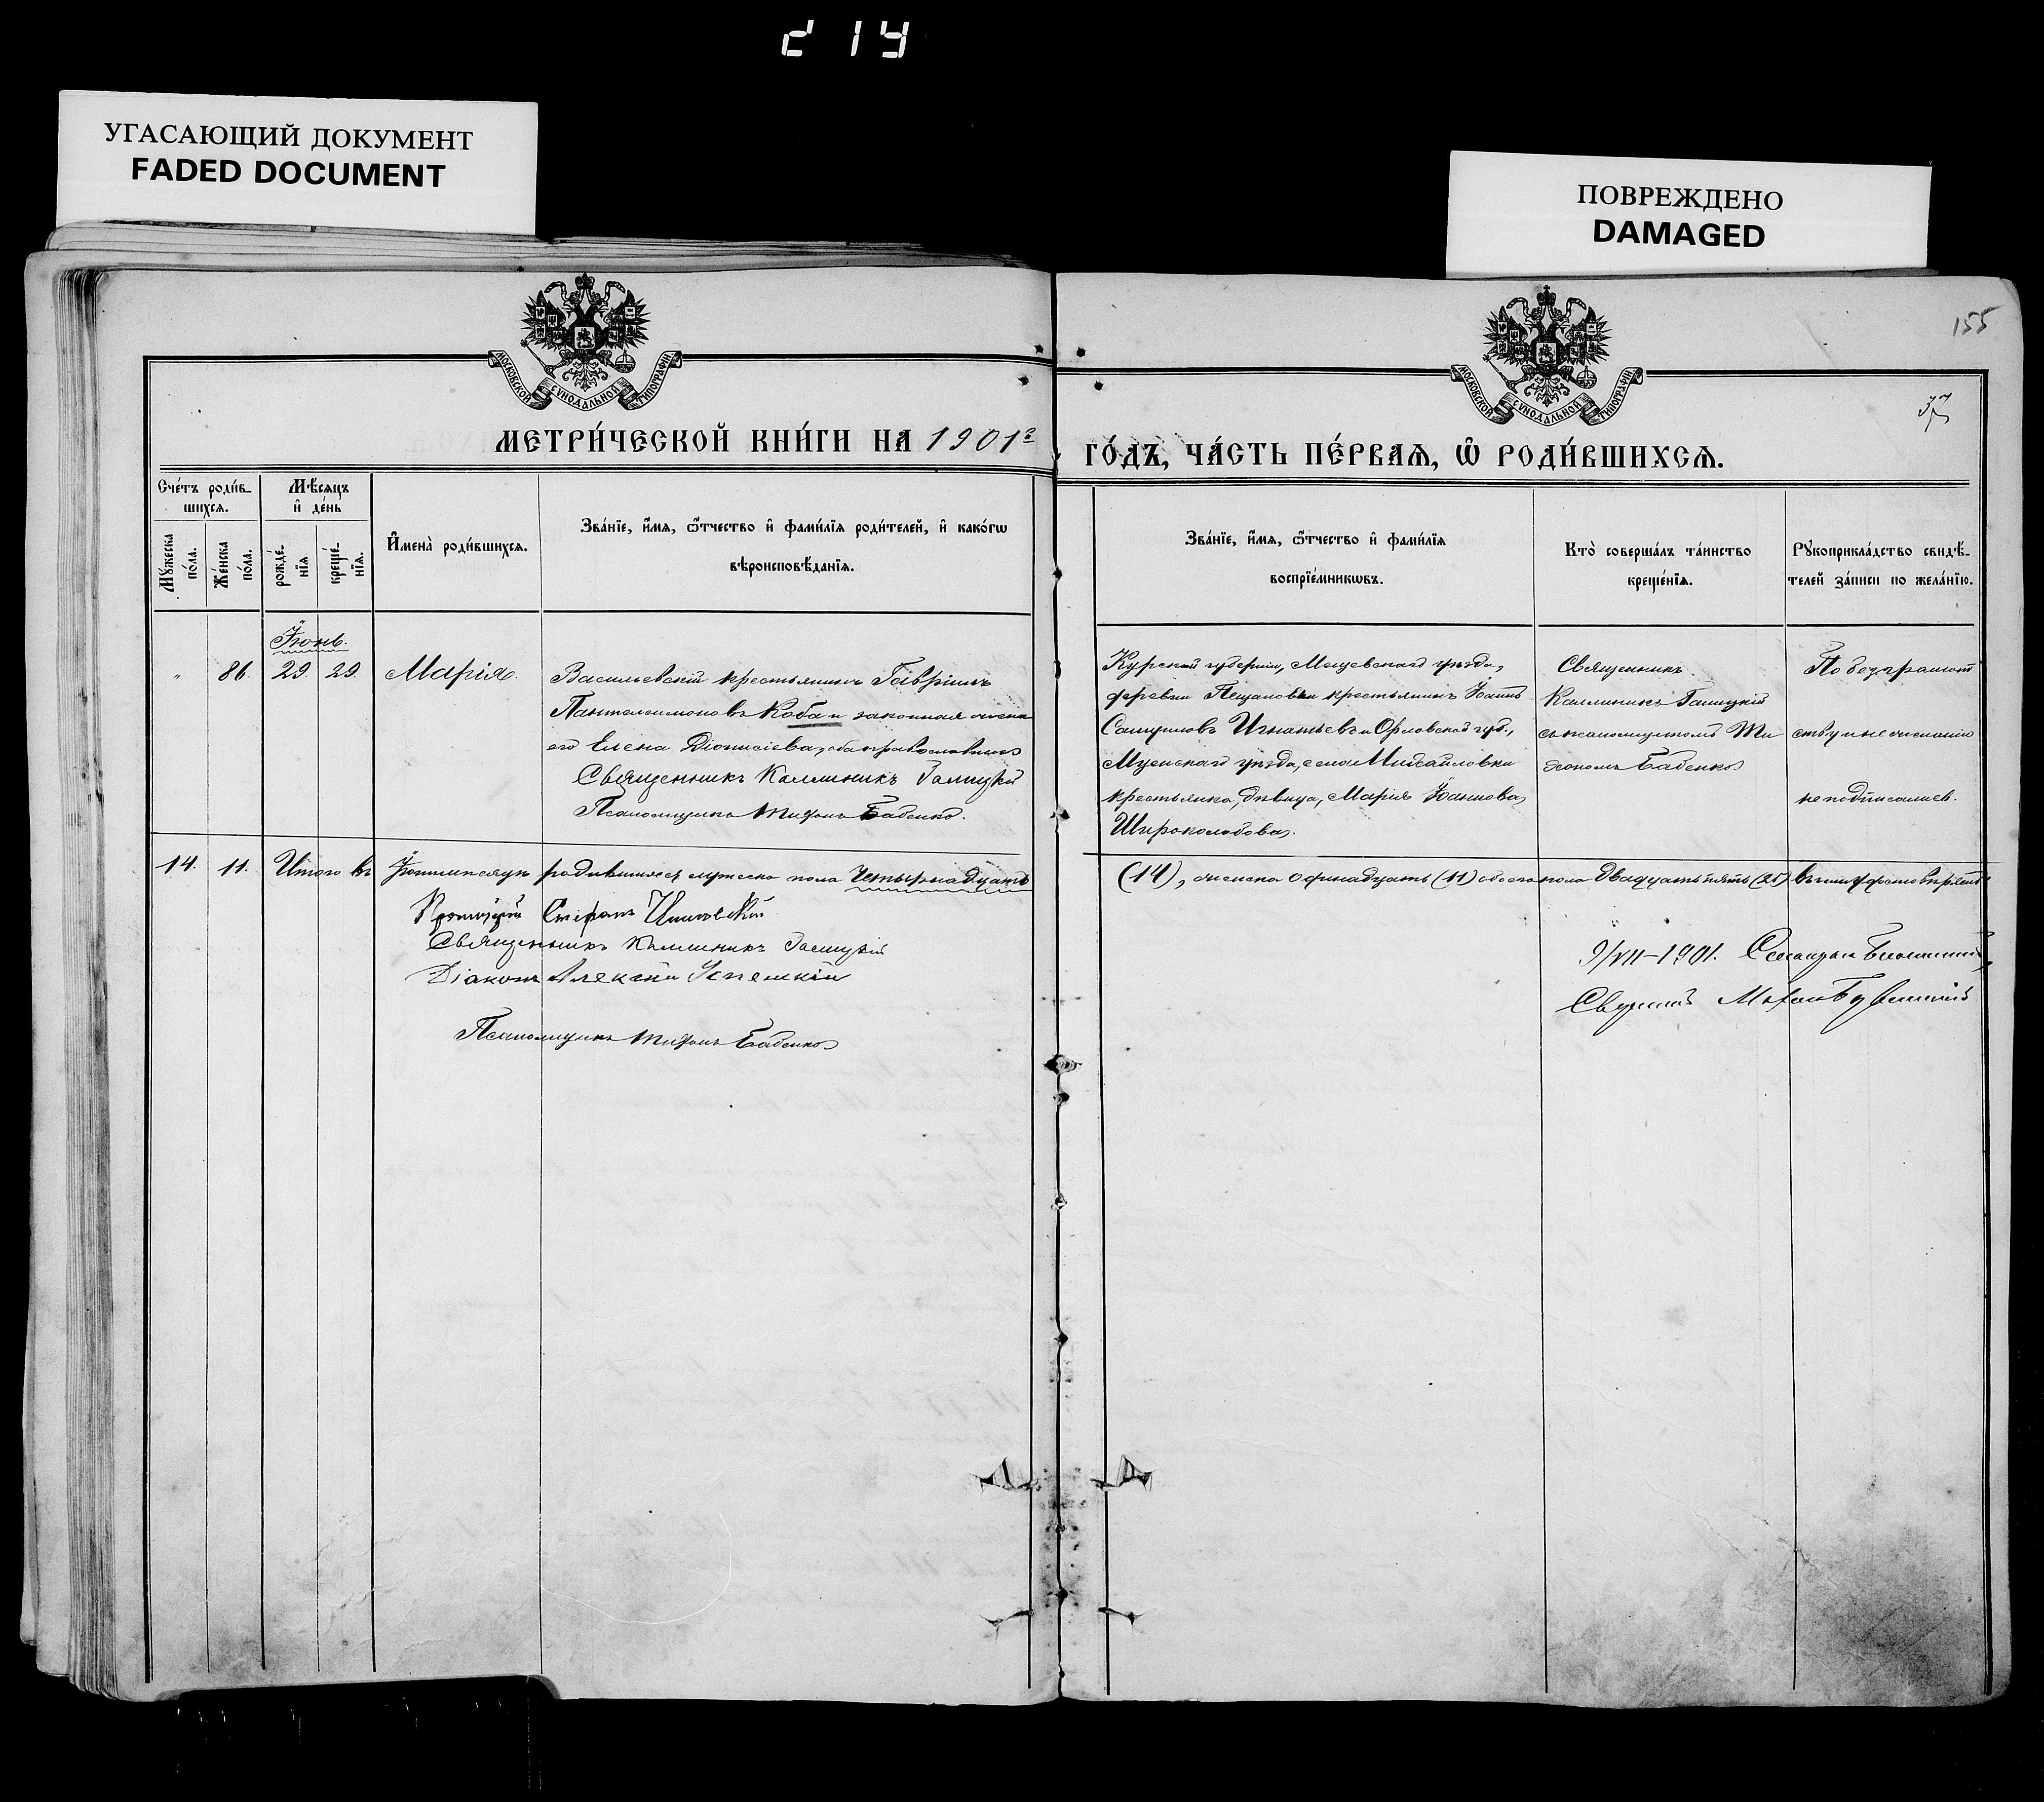 214
УГАСАЮЩИЙ ДОКУМЕНТ
FADED DOCUMENT
ПОВРЕЖДЕНО
DAMAGED
155
37
МОСКОВСКОЙ СѴНОДАЛЬНОЙ ТИПОГРАФІИ
МОСКОВСКОЙ СѴНОДАЛЬНОЙ ТИПОГРАФІИ
МЕТРИ́ЧЕСКОЙ КНИ́ГИ НА 1901 г
ГО́ДЪ, ЧА́СТЬ ПЕ́РВАЯ, Ѡ РОДИ́ВШИХСЯ.
Сче́тъ роди́в-
шихся.
Мꙋжеска по́ла.
Же́нска по́ла.
Мѣ́сяцъ
и де́нь
рожде́-
нїя
креще́-
нїя.
И҆мена̀ роди́вшихся.
Зва́нїе, и҆́мя, ѻ҆́тчество и҆ фами́лїя роди́телей, и҆ како́гѡ
вѣроисповѣ́данїя.
Зва́нїе, и҆́мя, ѻ҆́тчество и҆ фами́лїя
воспрїе́мникѡвъ.
Кто̀ соверша́лъ та́инство
креще́нїя.
Рꙋкоприкла́дство свидѣ́-
телей за́писи по жела́нїю.
Іюнь.
" 86. 29. 29. Марія.
Васильевскій крестьянинъ Гавріилъ
Пантелеимоновъ Коба и законная жена
его Елена Діонисіева, оба православные
Священникъ Каллиникъ Галицкій
Псаломщикъ Тихонъ Бабенко.
Курской губерніи, уѣзда,
деревни крестьянинъ Іоаннъ
Игнатьевъ и Орловской губ.,
уѣзда, села Михайловки
крестьянка, дѣвица, Марія Іоаннова
Широколобова.
Священникъ
Каллиникъ Галицкій
съ псаломщикомъ Ти
хономъ Бабенко
По безграмот
ству и не желанію
не подписались.
14. 11. Итого въ Іюнѣ мѣсяцѣ родившихся мужеска пола Четырнадцать
(14), женска одинадцать (11) обоего пола двадцать пять (25)
Протоіерей Стефанъ
Священникъ Каллиникъ Галицкій
Діаконъ Алексій
Псаломщикъ Тихонъ Бабенко
9/VII-1901.